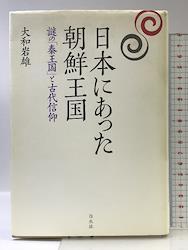 日本にあった
朝鮮王国
謎の「秦王国」と古代信仰
大和岩雄
白水社